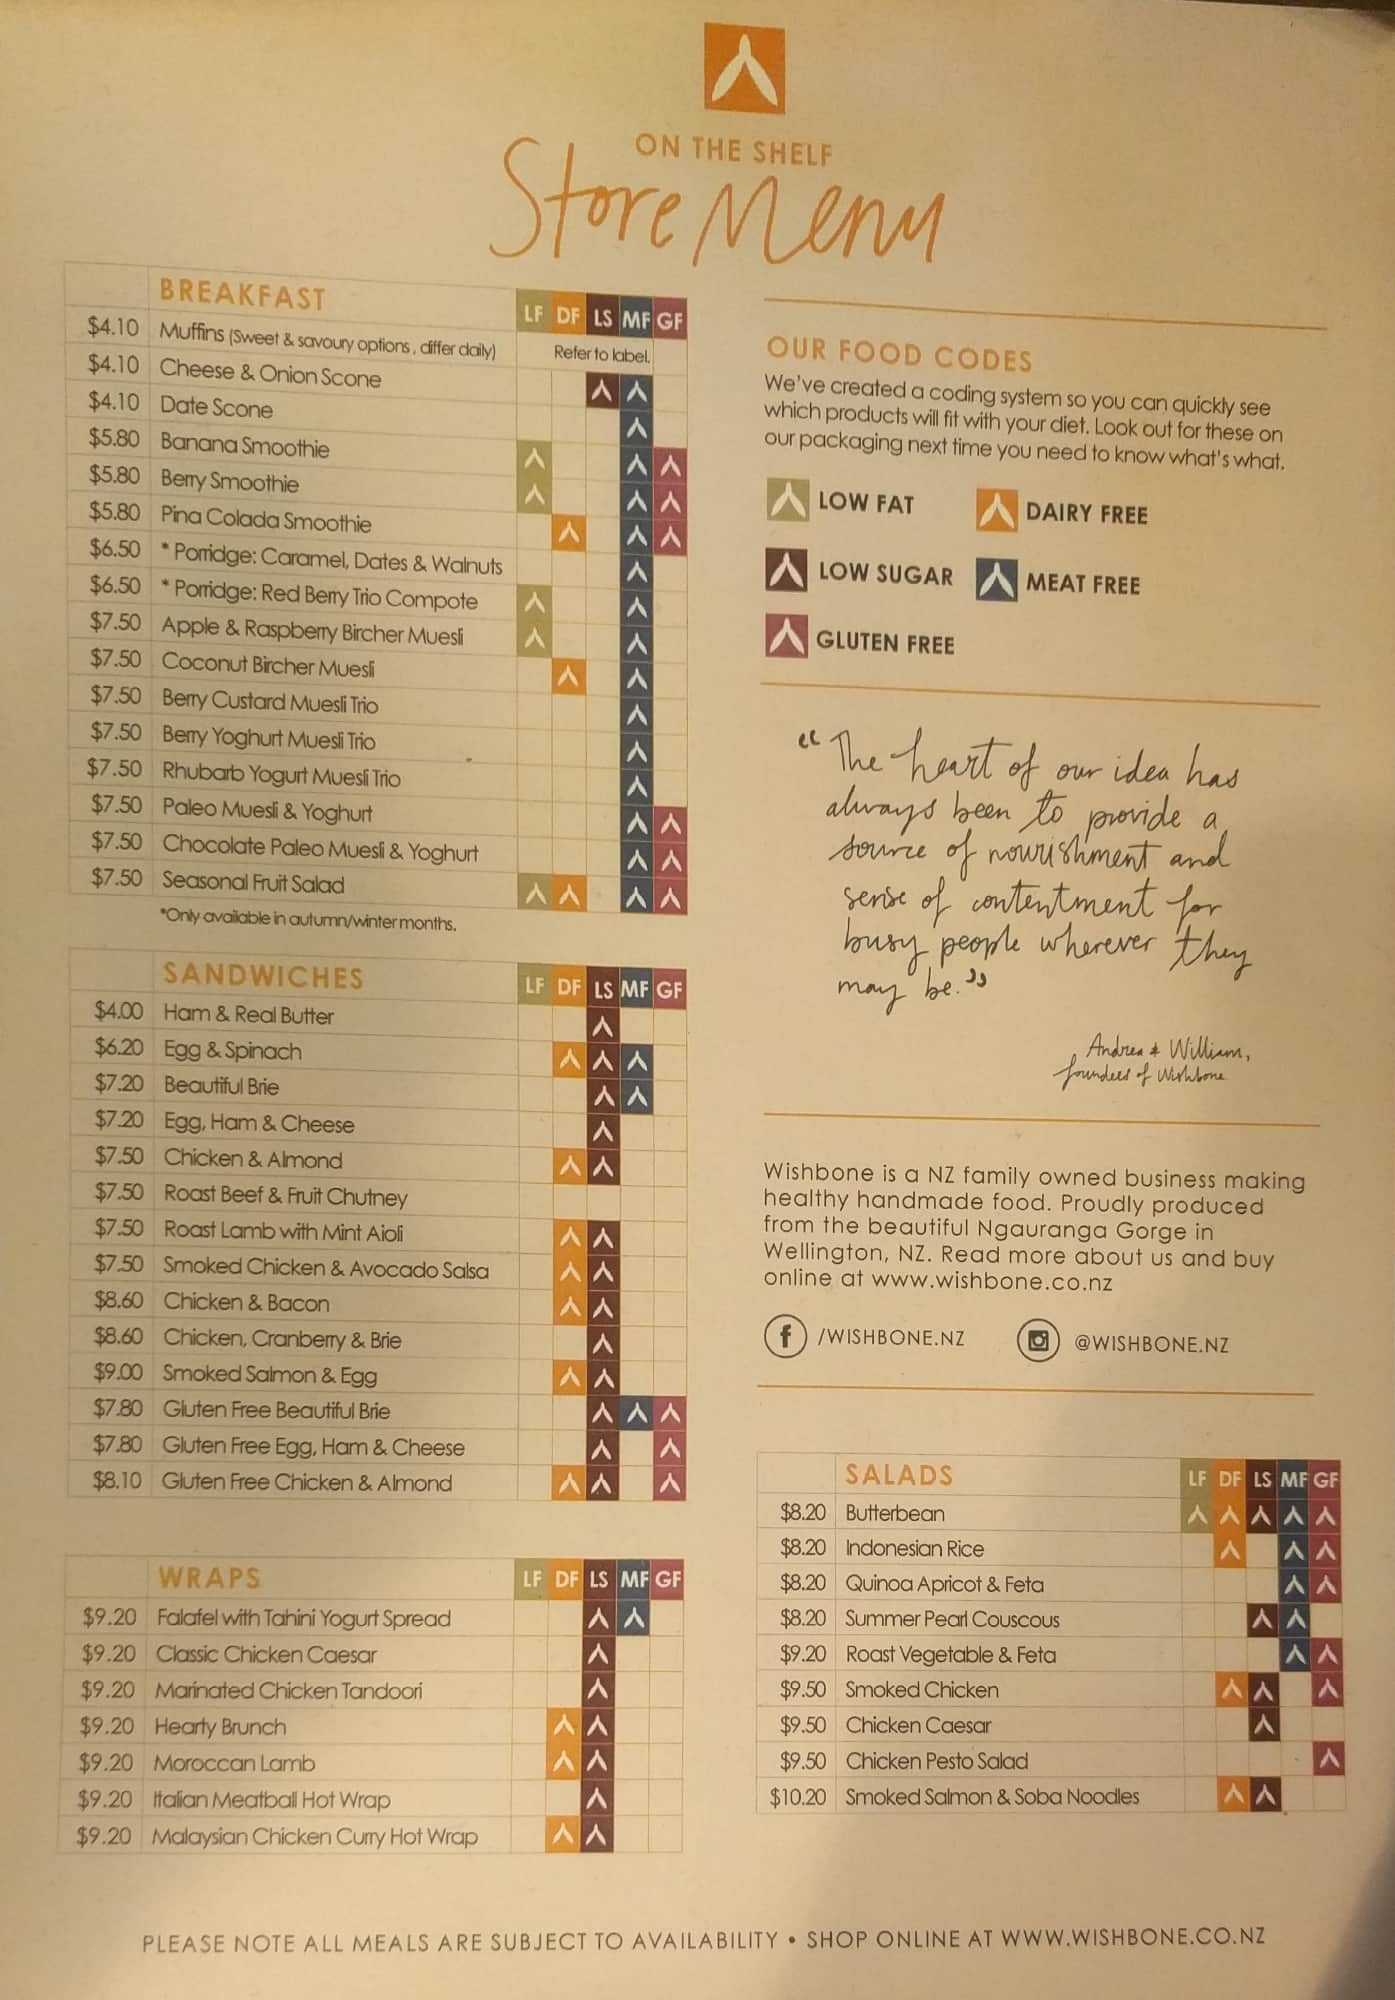 ON THE SHELF
Store Menu
BREAKFAST LF DF LS MF GF
$4.10 Muffins (Sweet & savoury options, differ daily) Refer to label.
$4.10 Cheese & Onion Scone
$4.10 Date Scone
$5.80 Banana Smoothie
$5.80 Berry Smoothie
$5.80 Pina Colada Smoothie
$6.50 * Porridge: Caramel, Dates & Walnuts
$6.50 * Porridge: Red Berry Trio Compote
$7.50 Apple & Raspberry Bircher Muesli
$7.50 Coconut Bircher Muesli
$7.50 Berry Custard Muesli Trio
$7.50 Berry Yoghurt Muesli Trio
$7.50 Rhubarb Yogurt Muesli Trio
$7.50 Paleo Muesli & Yoghurt
$7.50 Chocolate Paleo Muesli & Yoghurt
$7.50 Seasonal Fruit Salad
*Only available in autumn/winter months.
SANDWICHES LF DF LS MF GF
$4.00 Ham & Real Butter
$6.20 Egg & Spinach
$7.20 Beautiful Brie
$7.20 Egg, Ham & Cheese
$7.50 Chicken & Almond
$7.50 Roast Beef & Fruit Chutney
$7.50 Roast Lamb with Mint Aioli
$7.50 Smoked Chicken & Avocado Salsa
$8.60 Chicken & Bacon
$8.60 Chicken, Cranberry & Brie
$9.00 Smoked Salmon & Egg
$7.80 Gluten Free Beautiful Brie
$7.80 Gluten Free Egg, Ham & Cheese
$8.10 Gluten Free Chicken & Almond
WRAPS LF DF LS MF GF
$9.20 Falafel with Tahini Yogurt Spread
$9.20 Classic Chicken Caesar
$9.20 Marinated Chicken Tandoori
$9.20 Hearty Brunch
$9.20 Moroccan Lamb
$9.20 Italian Meatball Hot Wrap
$9.20 Malaysian Chicken Curry Hot Wrap
OUR FOOD CODES
We've created a coding system so you can quickly see
which products will fit with your diet. Look out for these on
our packaging next time you need to know what's what.
LOW FAT DAIRY FREE
LOW SUGAR MEAT FREE
GLUTEN FREE
"The heart of our idea has
always been to provide a
source of nourishment and
sense of contentment for
busy people wherever they
may be."
Andrea & William,
founders of Wishbone
Wishbone is a NZ family owned business making
healthy handmade food. Proudly produced
from the beautiful Ngauranga Gorge in
Wellington, NZ. Read more about us and buy
online at www.wishbone.co.nz
f /WISHBONE.NZ @WISHBONE.NZ
SALADS LF DF LS MF GF
$8.20 Butterbean
$8.20 Indonesian Rice
$8.20 Quinoa Apricot & Feta
$8.20 Summer Pearl Couscous
$9.20 Roast Vegetable & Feta
$9.50 Smoked Chicken
$9.50 Chicken Caesar
$9.50 Chicken Pesto Salad
$10.20 Smoked Salmon & Soba Noodles
PLEASE NOTE ALL MEALS ARE SUBJECT TO AVAILABILITY • SHOP ONLINE AT WWW.WISHBONE.CO.NZ